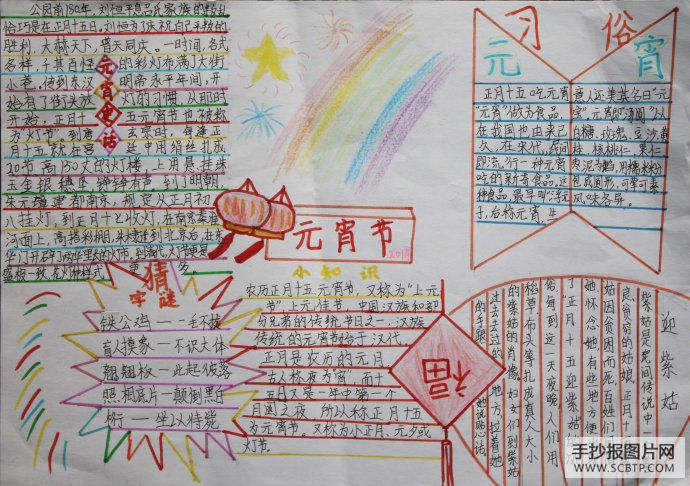 公园前180年,刘恒平息吕氏家族的
俗巧是在正月十五日,刘恒为了庆祝自己平叛的
胜利,大赦天下,普天同庆。一时间,各式
各样,千其百怪的彩灯布满了大街
小巷。传到东汉明帝永平年间,开
始有了街头放灯的习惯,从那时
开始,正月十五元宵节也又被称
为"灯节"到唐玄宗时,每逢正
月十五就在宫廷中用绢丝扎成
20节高150丈的灯楼上用悬挂珠
玉金银穗
朱元璋建都南京,规定从正月初
八挂灯,到正月十七收灯,在南京秦淮
河面上,高搭彩棚,到北京后,在东
元宵夜话
元宵节
小知识
农历正月十五元宵节,又称为"上元
节",上元佳节,中国汉族和部
分兄弟的传统节日之一,汉族
传统的元宵节始于汉代,
正月是农历的元月,
古人称夜为"宵"而十
五日又是一年中第一个
月圆之夜,所以称正月十五
为元宵节。又称为小正月、元夕或
灯节。
福
猜
字谜
铁公鸡——一毛不拔
盲人摸象——不识大体
翘翘板——此起彼落
照相底片——颠倒黑白
——坐以待毙
元宵习俗
正月十五吃元宵
"元宵"做为食品,
在我国也由来已
久,在宋代,民间
即流行一种元宵
吃的新奇食品,这
种食品,最早叫"浮元
子,后称元宵,生
意人还美其名曰"元
宝"。元宵即"汤圆"以
白糖,玫瑰,豆沙,黄
桂,核桃仁,果仁
枣泥为馅,用糯米粉
包成圆形,可荤可素
风味各异。
迎紫姑
紫姑是民间传说中一
良,贫穷的姑娘。正月十
姑因贫困而死,百姓们
她怀念她,有些地方便
了正月十五迎紫姑
俗每到这一天夜晚,人们用
稻草布头等扎成真人大小
的紫姑的肖像,妇女们到紫姑
过去去过的地方,拉着她
的手跟她说贴心话。
手抄报图片网
www.SCBTP.com